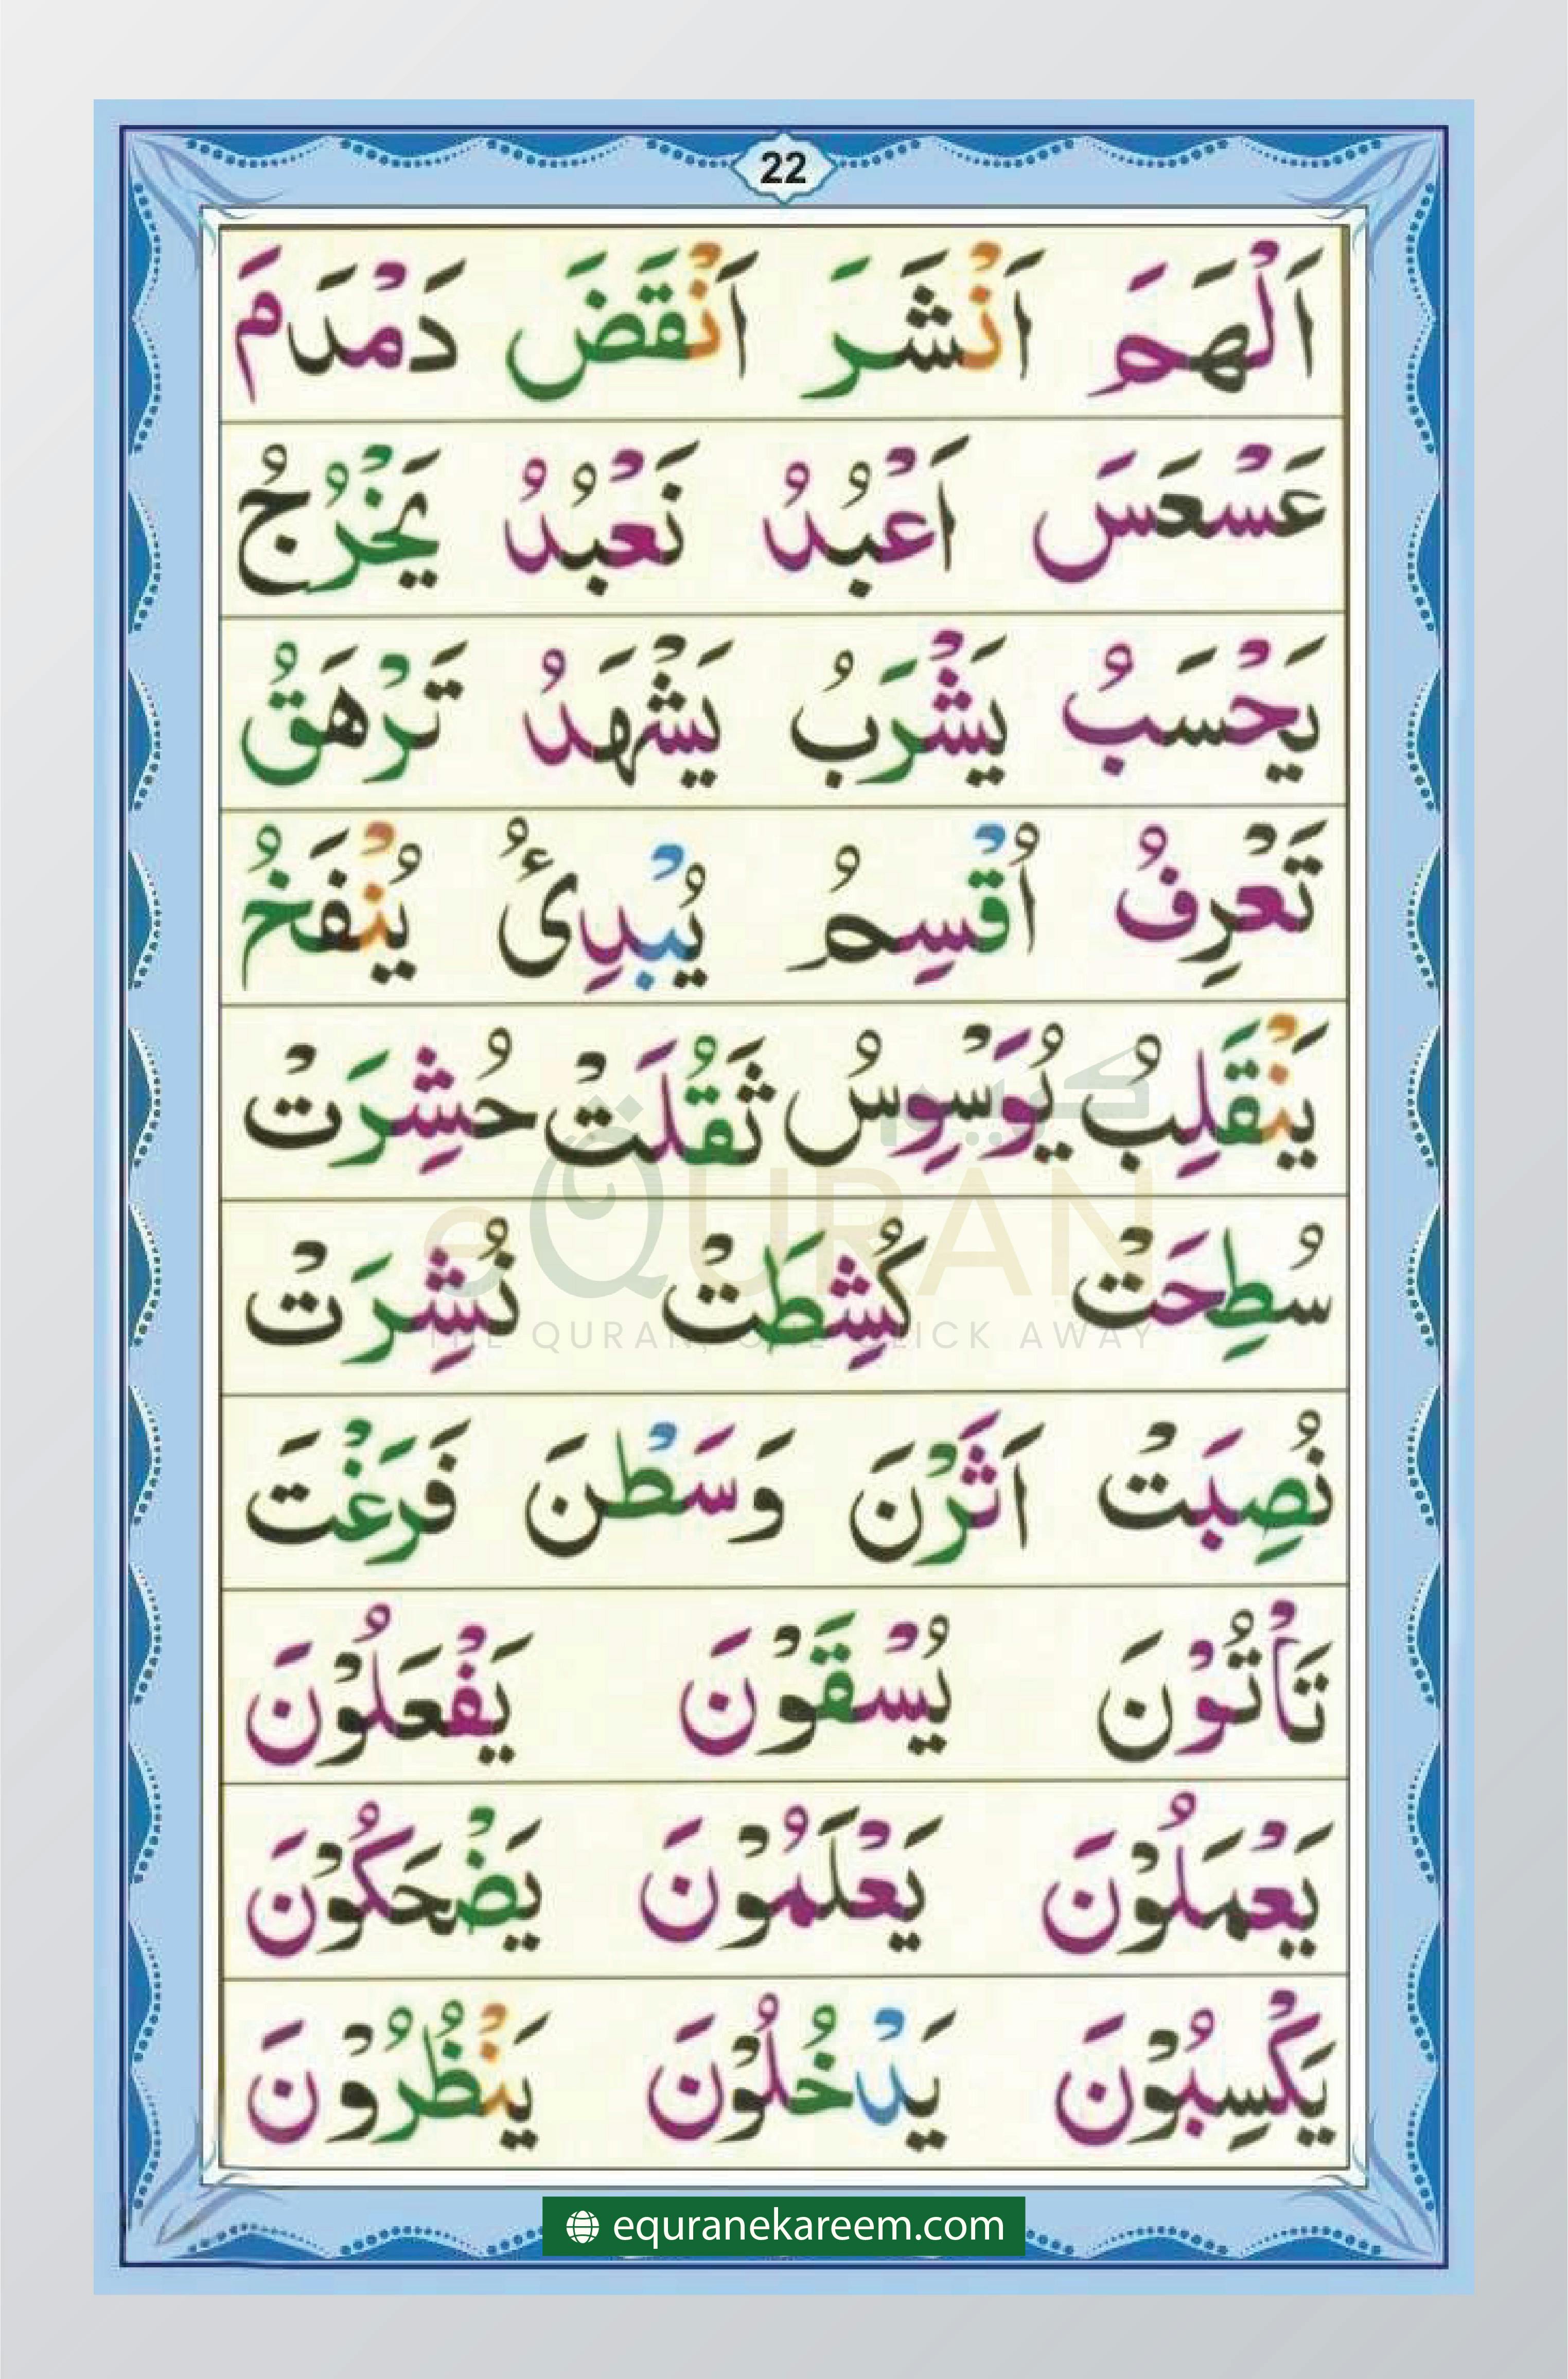 22
اَلْهَمَ اَنْشَرَ اَنْقَضَ دَمْدَمَ
عَسْعَسَ اَعْبُدُ نَعْبُدُ يَخْرُجُ
يَحْسَبُ يَشْرَبُ يَشْهَدُ تَرْهَقُ
تَعْرِفُ اُقْسِمُ يُبْدِئُ يُنْفَخُ
يَنْقَلِبُ يُوَسْوِسُ ثَقُلَتْ حُشِرَتْ
سُطِحَتْ كُشِطَتْ نُشِرَتْ
نُصِبَتْ اَثَرْنَ وَسَطْنَ فَرَغْتَ
تَأْتُوْنَ يُسْقَوْنَ يَفْعَلُوْنَ
يَعْمَلُوْنَ يَعْلَمُوْنَ يَضْحَكُوْنَ
يَكْسِبُوْنَ يَدْخُلُوْنَ يَنْظُرُوْنَ
eQURAN
THE QURAN, ONE CLICK AWAY
equranekareem.com